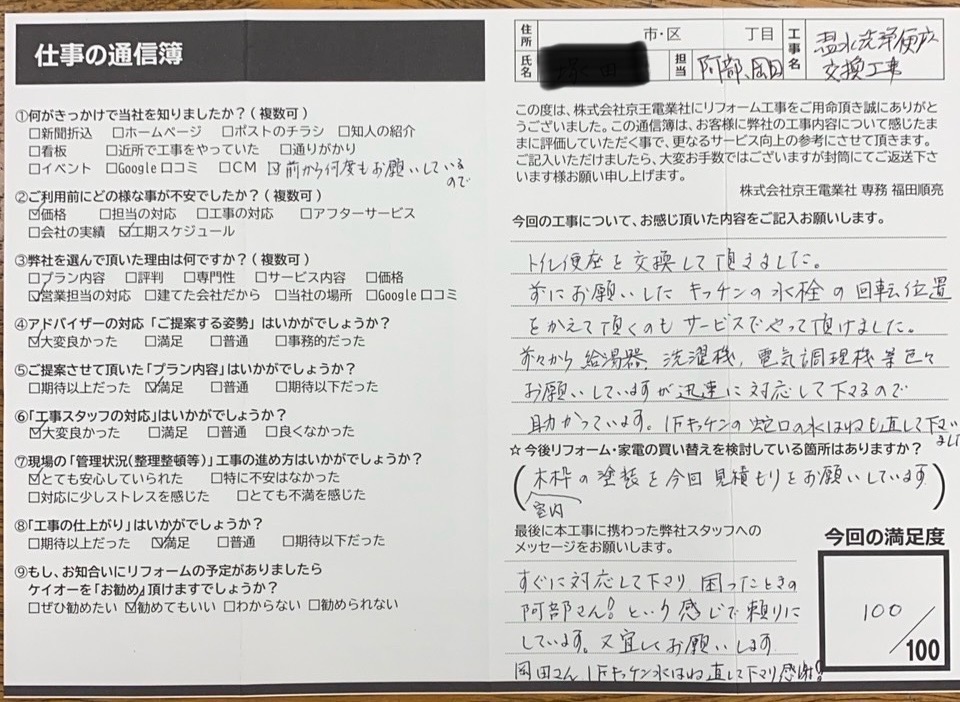 仕事の通信簿
①何がきっかけで当社を知りましたか？(複数可)
□新聞折込 □ホームページ □ポストのチラシ □知人の紹介
□看板 □近所で工事をやっていた □通りがかり
□イベント □Google口コミ □CM ☑前から何度もお願いしている
ので
②ご利用前にどの様な事が不安でしたか？(複数可)
☑価格 □担当の対応 □工事の対応 □アフターサービス
□会社の実績 ☑工期スケジュール
③弊社を選んで頂いた理由は何ですか？(複数可)
□プラン内容 □評判 □専門性 □サービス内容 □価格
☑営業担当の対応 □建てた会社だから □当社の場所 □Google口コミ
④アドバイザーの対応「ご提案する姿勢」はいかがでしょうか？
☑大変良かった □満足 □普通 □事務的だった
⑤ご提案させて頂いた「プラン内容」はいかがでしょうか？
□期待以上だった ☑満足 □普通 □期待以下だった
⑥「工事スタッフの対応」はいかがでしょうか？
☑大変良かった □満足 □普通 □良くなかった
⑦現場の「管理状況(整理整頓等)」工事の進め方はいかがでしょうか？
☑とても安心していられた □特に不安はなかった
□対応に少しストレスを感じた □とても不満を感じた
⑧「工事の仕上がり」はいかがでしょうか？
□期待以上だった ☑満足 □普通 □期待以下だった
⑨もし、お知合いにリフォームの予定がありましたら
ケイオーを「お勧め」頂けますでしょうか？
□ぜひ勧めたい ☑勧めてもいい □わからない □勧められない
住所 市・区 丁目
氏名 担当 阿部、岡田
工事名 温水洗浄便座
交換工事
この度は、株式会社京王電業社にリフォーム工事をご用命頂き誠にありがと
うございました。この通信簿は、お客様に弊社の工事内容について感じたま
まに評価していただく事で、更なるサービス向上の参考にさせて頂きます。
ご記入いただけましたら、大変お手数ではございますが封筒にてご返送下さ
います様お願い申し上げます。
株式会社京王電業社 専務 福田順亮
今回の工事について、お感じ頂いた内容をご記入お願いします。
トイレ便座を交換して頂きました。
前にお願いしたキッチンの水栓の回転位置
をかえて頂くのもサービスでやって頂けました。
前々から給湯器、洗濯機、電気調理機等色々
お願いしていますが迅速に対応して下さるので
助かっています。1Fキッチンの蛇口の水はねも直して下さい
ました
☆今後リフォーム・家電の買い替えを検討している箇所はありますか？
(木枠の塗装を今回見積もりをお願いしています)
室内
最後に本工事に携わった弊社スタッフへの
メッセージをお願いします。
すぐに対応して下さり 困ったときの
阿部さん！という感じで頼りに
しています。又宜しくお願いします
岡田さん、1Fキッチン水はね直して下さり感謝！
今回の満足度
100/100